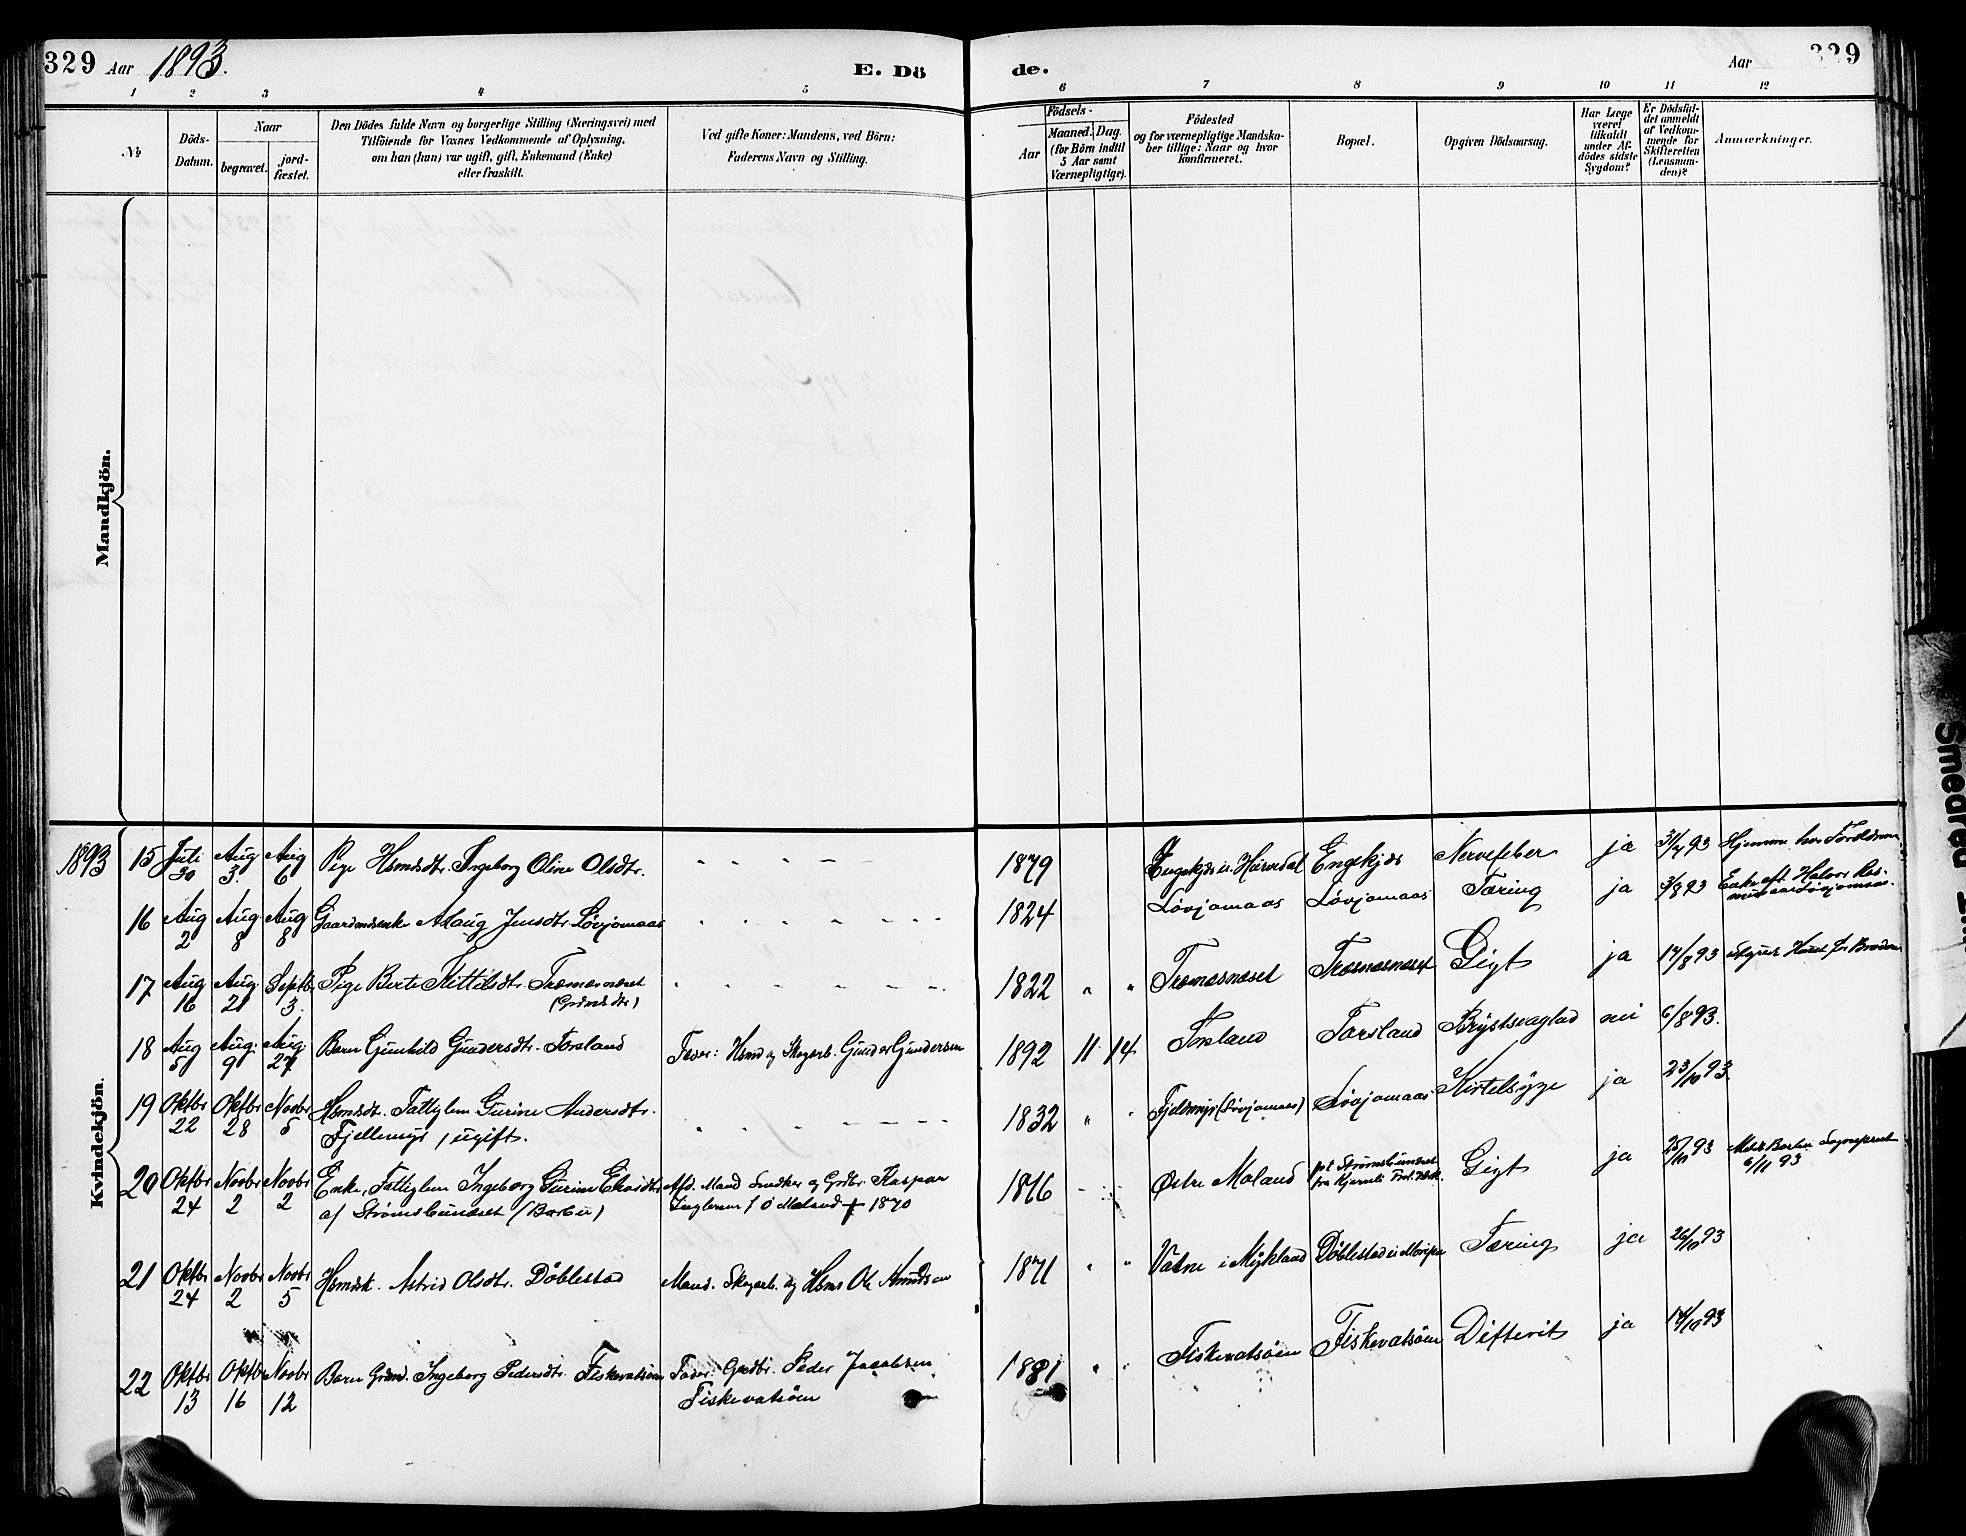 329 Aar 1893. E. Dö de. Aar 329
1 2 3 4 5 6 7 8 9 10 11 12
№
Döds-Datum.
Naar
begravet.
jord-fæstet.
Den Dödes fulde Navn og borgerlige Stilling (Næringsvei) med
Tilföiende for Voxnes Vedkommende af Oplysning,
om han (hun) var ugift, gift, Enkemand (Enke)
eller fraskilt.
Ved gifte Koner: Mandens, ved Börn:
Faderens Navn og Stilling.
Födsels-
Aar
Maaned. Dag.
(for Börn indtil
5 Aar samt
Værnepligtige).
Födested
og for værnepligtige Mandska-
ber tillige: Naar og hvor
konfirmeret.
Bopæl.
Opgiven Dödsaarsag.
Har Læge
været
tilkaldt
under Af-
dödes sidste
Sygdom?
Er Dödsfal-
det anmeldt
af Vedkom-
mende for
Skifteretten
(Lensman-
den)?
Anmærkninger.
Mandkjön.
Kvindekjön.
1893 15 Juli 30 Aug 3. Aug 6 Pige Hsmdsdtr. Ingeborg Oline Olsdtr. 1879 Engekjær i Engekjær Nervefeber ja 31/7 93 Hjemme hos Forældrene
16 Aug 2 Aug 8 Aug 8 Gaardmdsenke Aslaug Jensdtr. Løvjomaas 1824 Løvjomaas Løvjomaas Tæring ja 3/8 93 Enke eft. Halvor
17 Aug 16 Aug 21 Septbr 3. Pige Berte Kittilsdtr. Træmæsnæset (Grdmdsdtr) 1822 " " Træmæsnæset Træmæsnæset Gigt ja 17/8 93
18 Aug 5 Aug. 9 Aug 27 Barn Gunhild Gundersdtr. Torsland Fader: Hsmd og Skogarb. Gunder Gundersen 1892 11 14 Torsland Torsland Brystsvaghed nei 6/8 93.
19 Oktbr 22 Oktbr 28 Novbr 5 Hsmdsdt. Fattiglem Gurine Andersdtr. Fjellemyr, ugift. 1832 " " Fjellmyr (Løvjomaas) Løvjomaas Kirtelsyge ja 23/10 93.
20 Oktbr 24 Novbr 2 Novbr 2 Enke, Fattiglem Ingeborg Gurine
af Strømsbunæset (Barbu) Afd. Mand Snedker og Grdbr. Kaspar
Ø Moland + 1870 Østre Moland pt Strømsbunæset fra Gigt ja 25/10 93 6/11 93
21 Oktbr 24 Novbr 2 Novbr 5 Hsmdsk. Astrid Olsdtr. Döblestad Mand. Skogarb. og Hsmd Ole Amundsen 1871 " " Vatne i Mykland Döblestad i Tæring ja 26/10 93
22 Oktbr 13 Oktbr 16 Novbr 12 Barn Ingeborg Pedersdtr. Fiskevatsöen Fader: Grdbr. Peder Jacobsen
Fiskevatsöen 1881 " " Fiskevatsöen Fiskevatsöen Difterit ja 14/10 93
Smeared